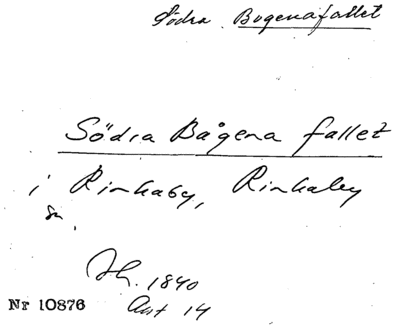 Södra Bogenafallet
Södra Bågena fallet
i Rinkaby, Rinkaby
sn.
Jh. 1840
Avst 14
Nr 10876